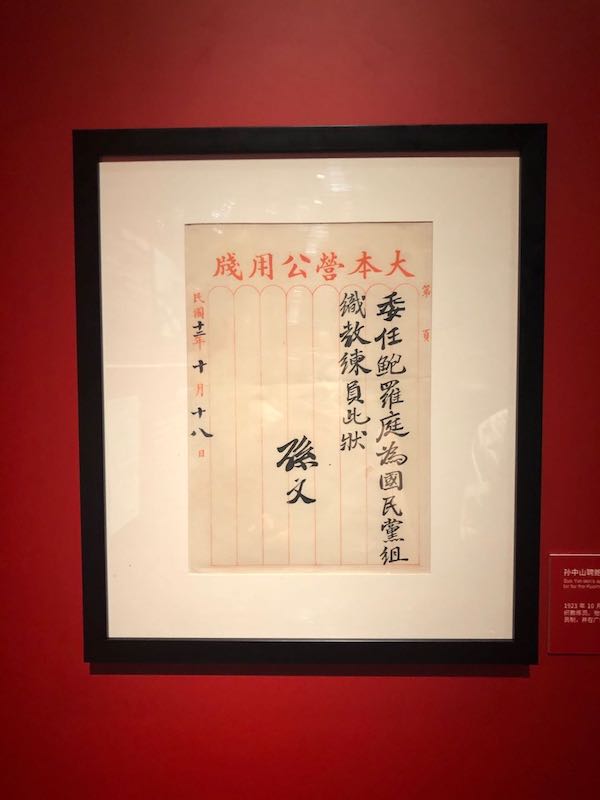 大本營公用牋
第 頁
委任鮑羅庭為國民黨組
織教練員此狀
孫文
民國十二年十月十八日
孙中山聘鲍
Sun Yat-sen's
tor for the
1923 年 10 月
织教练员。
员制，并在广